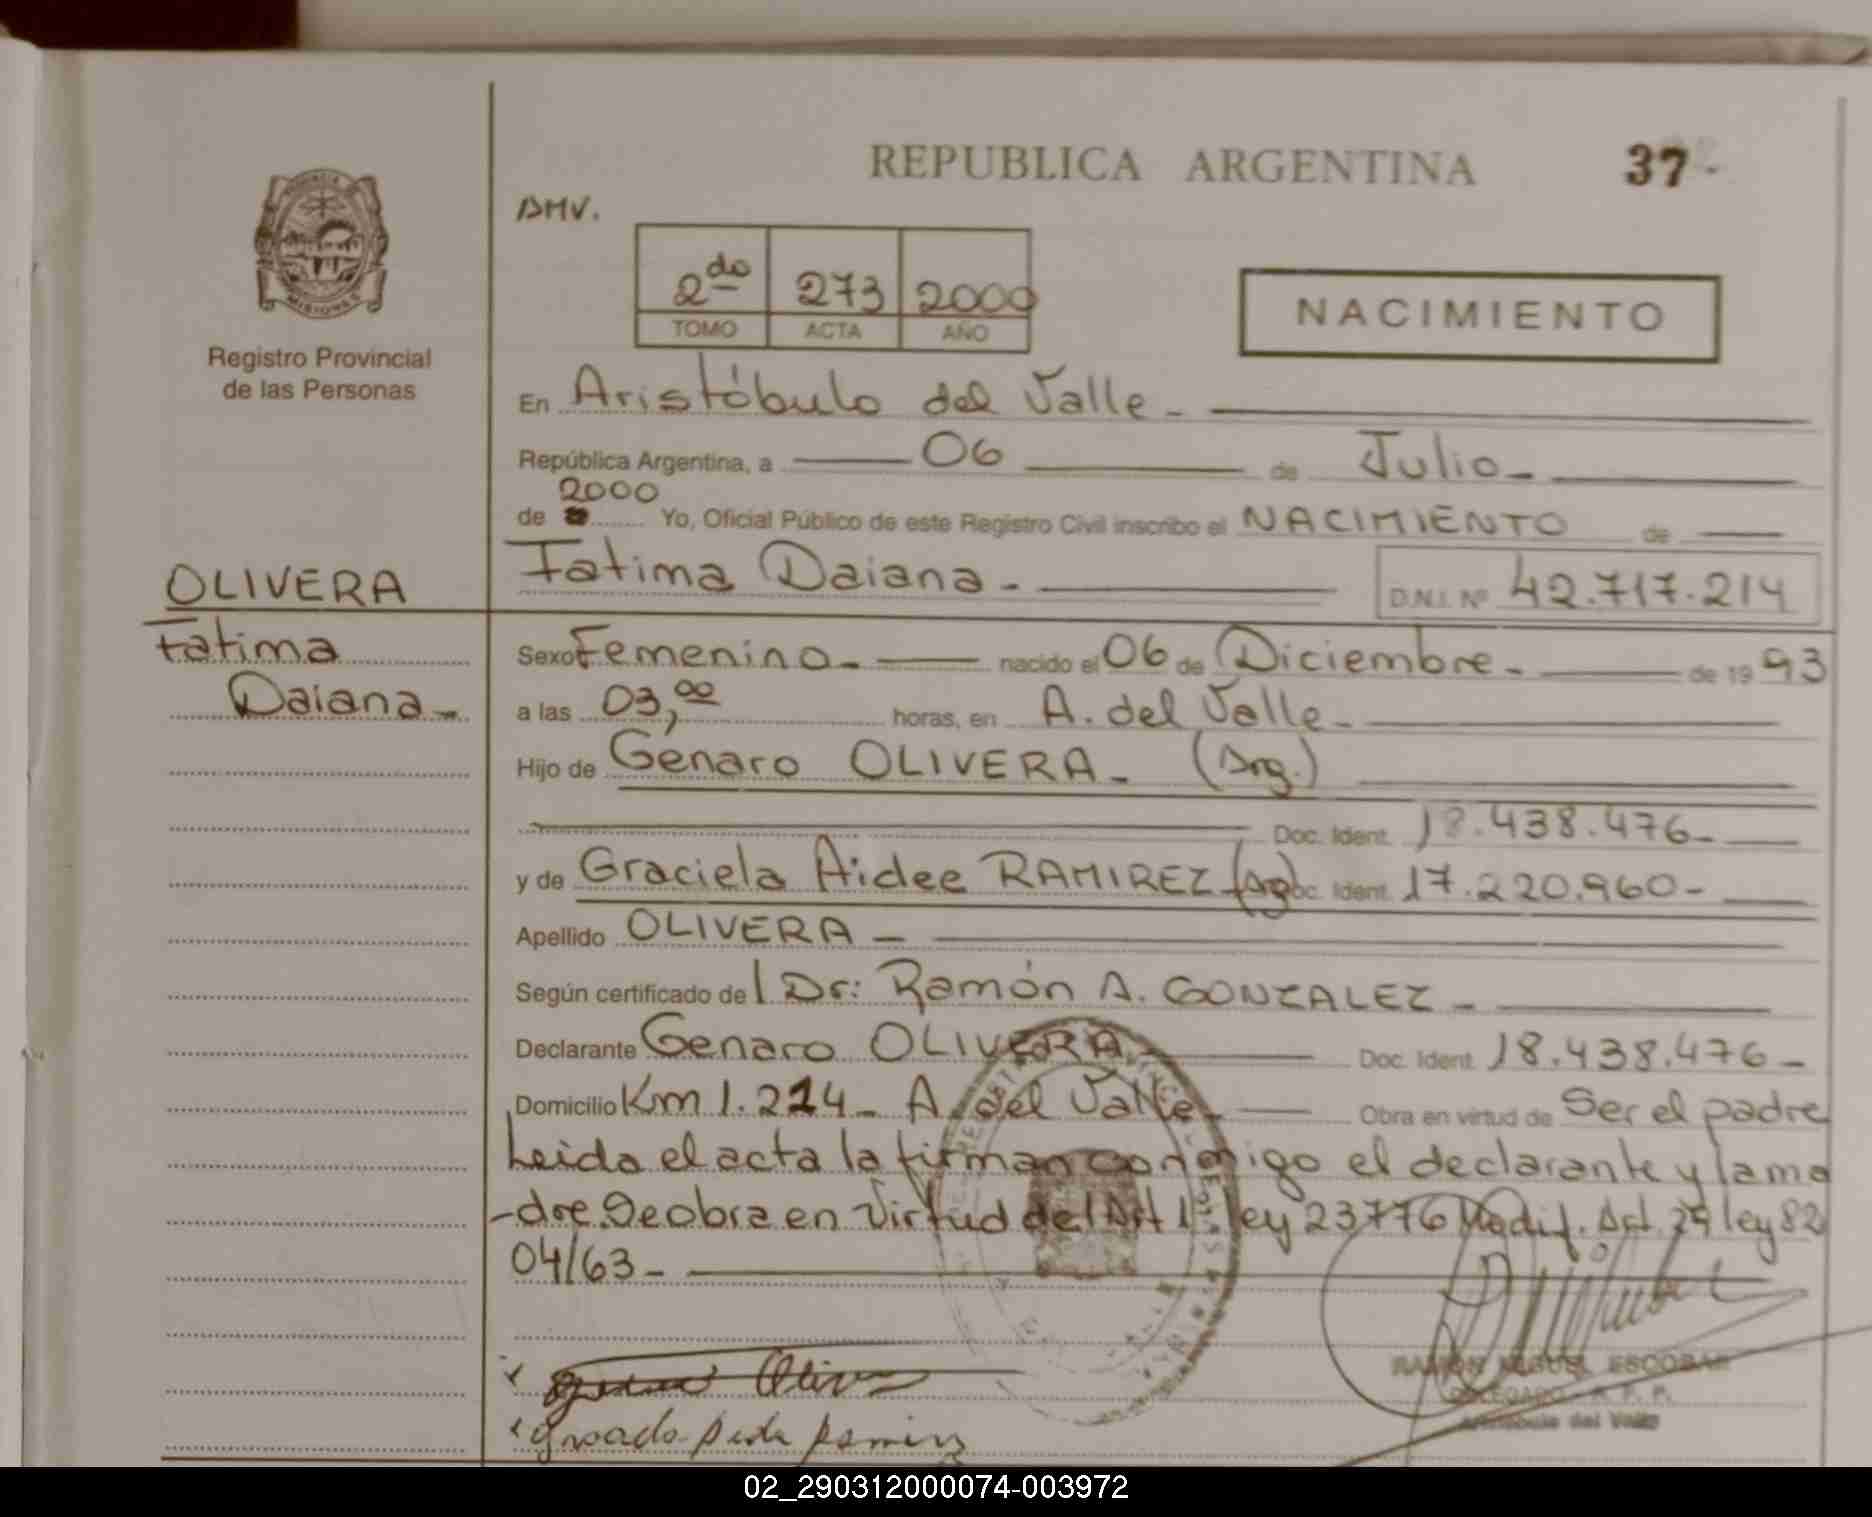 REPUBLICA ARGENTINA
37
PROVINCIA DE
MISIONES
Registro Provincial
de las Personas
AMV.
2do 273 2000
TOMO ACTA AÑO
NACIMIENTO
En Aristóbulo del Valle -
República Argentina, a 06 de Julio -
2000
de Yo, Oficial Público de este Registro Civil inscribo el NACIMIENTO de
Fatima Daiana - D.N.I. Nº 42.717.214
OLIVERA
Fatima
Daiana -
Sexo Femenino - nacido el 06 de Diciembre - de 19 93
a las 03,00 horas, en A. del Valle -
Hijo de Genaro OLIVERA - (Arg.)
Doc. Ident. 18.438.476 -
y de Graciela Aidee RAMIREZ - (Arg) Doc. Ident. 17.220.960 -
Apellido OLIVERA -
Según certificado del Dr: Ramón A. GONZALEZ -
Declarante Genaro OLIVERA Doc. Ident. 18.438.476 -
Domicilio Km 1.224 - A. del Valle - Obra en virtud de Ser el padre
Leida el acta la firman conmigo el declarante y la ma
-dre. Se obra en Virtud del Art 1º ley 23776 Modif. Art. 29 ley 82
04/63 -
Olivera
RAMON MIGUEL ESCOBAR
DELEGADO - R. P. P.
Aristóbulo del Valle
02_290312000074-003972